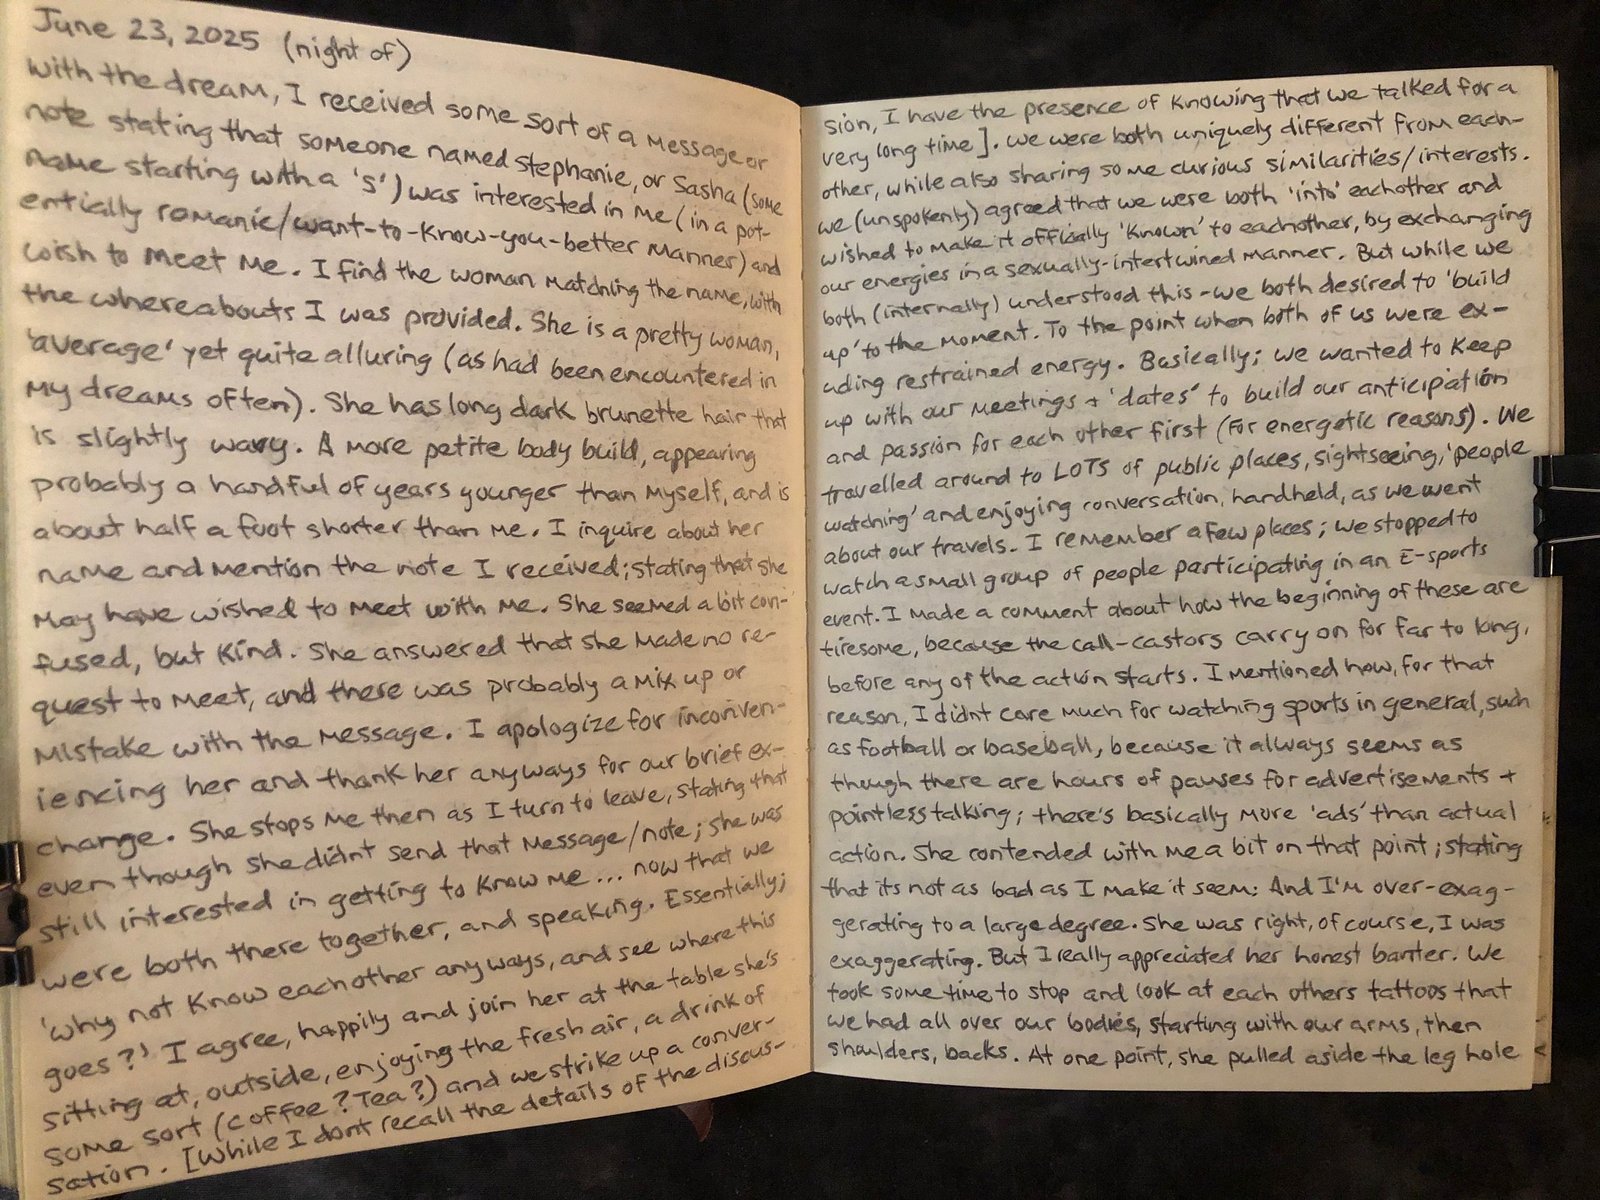 June 23, 2025 (night of)
With the dream, I received some sort of a message or
note stating that someone named Stephanie, or Sasha (some
name starting with a 'S') was interested in me (in a pot-
entially romanic/want-to-know-you-better manner) and
wish to meet me. I find the woman matching the name, with
the whereabouts I was provided. She is a pretty woman,
'average' yet quite alluring (as had been encountered in
my dreams often). She has long dark brunette hair that
is slightly wavy. A more petite body build, appearing
probably a handful of years younger than myself, and is
about half a foot shorter than me. I inquire about her
name and mention the note I received; stating that she
may have wished to meet with me. She seemed a bit con-
fused, but kind. She answered that she made no re-
quest to meet, and there was probably a mix up or
mistake with the message. I apologize for inconven-
iencing her and thank her anyways for our brief ex-
change. She stops me then as I turn to leave, stating that
even though she didnt send that message/note; she was
still interested in getting to know me... now that we
were both there together, and speaking. Essentially;
'why not know eachother anyways, and see where this
goes?' I agree, happily and join her at the table she's
sitting at, outside, enjoying the fresh air, a drink of
some sort (coffee? Tea?) and we strike up a conver-
sation. [While I dont recall the details of the discus-
sion, I have the presence of knowing that we talked for a
very long time]. We were both uniquely different from each-
other, while also sharing some curious similarities/interests.
we (unspokenly) agreed that we were both 'into' eachother and
wished to make it offically 'known' to eachother, by exchanging
our energies in a sexually-intertwined manner. But while we
both (internally) understood this - we both desired to 'build
up' to the moment. To the point when both of us were ex-
uding restrained energy. Basically; we wanted to keep
up with our meetings + 'dates' to build our anticipation
and passion for each other first (for energetic reasons). We
travelled around to LOTS of public places, sightseeing, 'people
watching' and enjoying conversation, handheld, as we went
about our travels. I remember a few places; we stopped to
watch a small group of people participating in an E-sports
event. I made a comment about how the beginning of these are
tiresome, because the call-castors carry on for far to long,
before any of the action starts. I mentioned how, for that
reason, I didnt care much for watching sports in general, such
as football or baseball, because it always seems as
though there are hours of pauses for advertisements +
pointless talking; there's basically more 'ads' than actual
action. She contended with me a bit on that point; stating
that its not as bad as I make it seem: And I'm over-exag-
gerating to a large degree. She was right, of course, I was
exaggerating. But I really appreciated her honest banter. We
took some time to stop and look at each others tattoos that
we had all over our bodies, starting with our arms, then
shoulders, backs. At one point, she pulled aside the leg hole